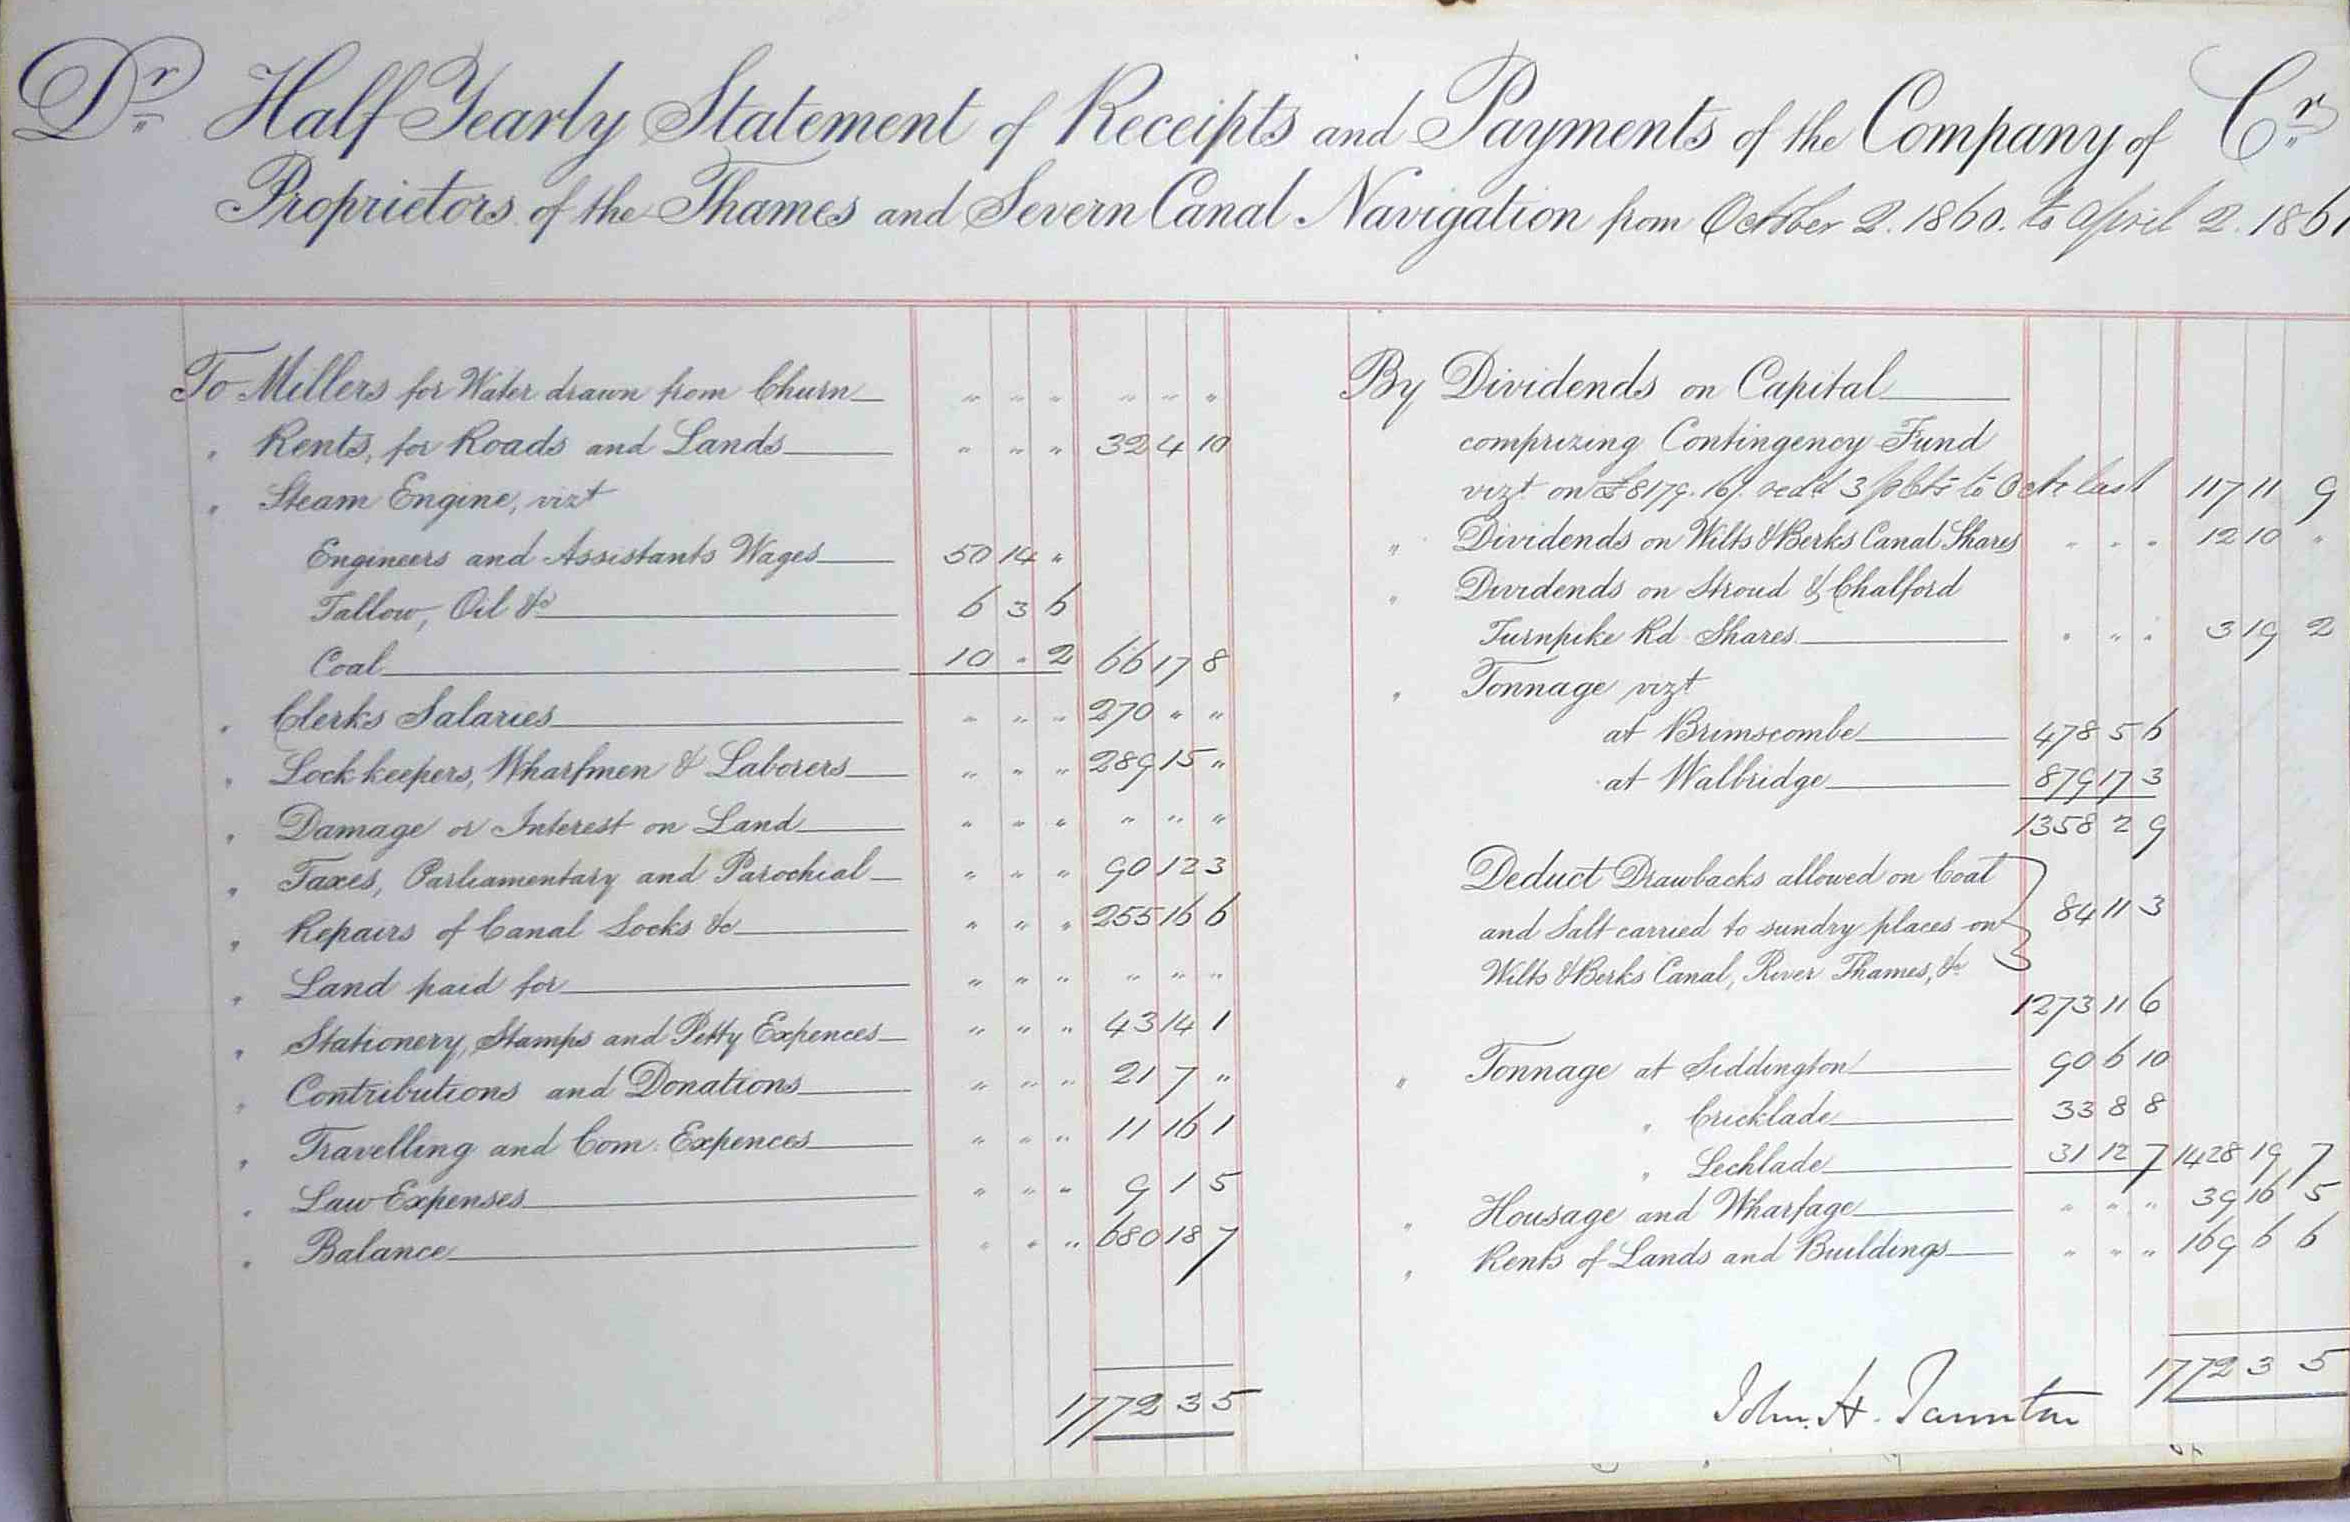 Dr Half Yearly Statement of Receipts and Payments of the Company of Cr
Proprietors of the Thames and Severn Canal Navigation from October 2. 1860. to April 2. 1861
To Millers for Water drawn from Churn " " " " " "
" Rents, for Roads and Lands " " " 32 4 10
" Steam Engine, vizt
Engineers and Assistants Wages 50 14 "
Tallow, Oil &c 6 3 6
Coal 10 " 2 66 17 8
" Clerks Salaries " " " 270 " "
" Lock keepers, Wharfmen & Laborers " " " 289 15 "
" Damage or Interest on Land " " " " " "
" Taxes, Parliamentary and Parochial " " " 90 12 3
" Repairs of Canal Locks &c " " " 255 16 6
" Land paid for " " " " " "
" Stationery, Stamps and Petty Expences " " " 43 14 1
" Contributions and Donations " " " 21 7 "
" Travelling and Com. Expences " " " 11 16 1
" Law Expenses " " " 9 1 5
" Balance " " " 680 18 7
1772 3 5
By Dividends on Capital
comprizing Contingency Fund
vizt on £8179. 16/. red'd 3 p Cts to Octr last 117 11 9
" Dividends on Wilts & Berks Canal Shares " " " 12 10 "
" Dividends on Stroud & Chalford
Turnpike Rd Shares " " " 3 19 2
" Tonnage vizt
at Brimscombe 478 5 6
at Walbridge 879 17 3
1358 2 9
Deduct Drawbacks allowed on Coal
and Salt carried to sundry places on 84 11 3
Wilts & Berks Canal, River Thames, &c
1273 11 6
" Tonnage at Siddington 90 6 10
" Cricklade 33 8 8
" Lechlade 31 12 7 1428 19 7
" Housage and Wharfage " " " 39 16 5
" Rents of Lands and Buildings " " " 169 6 6
1772 3 5
John. H. Taunton